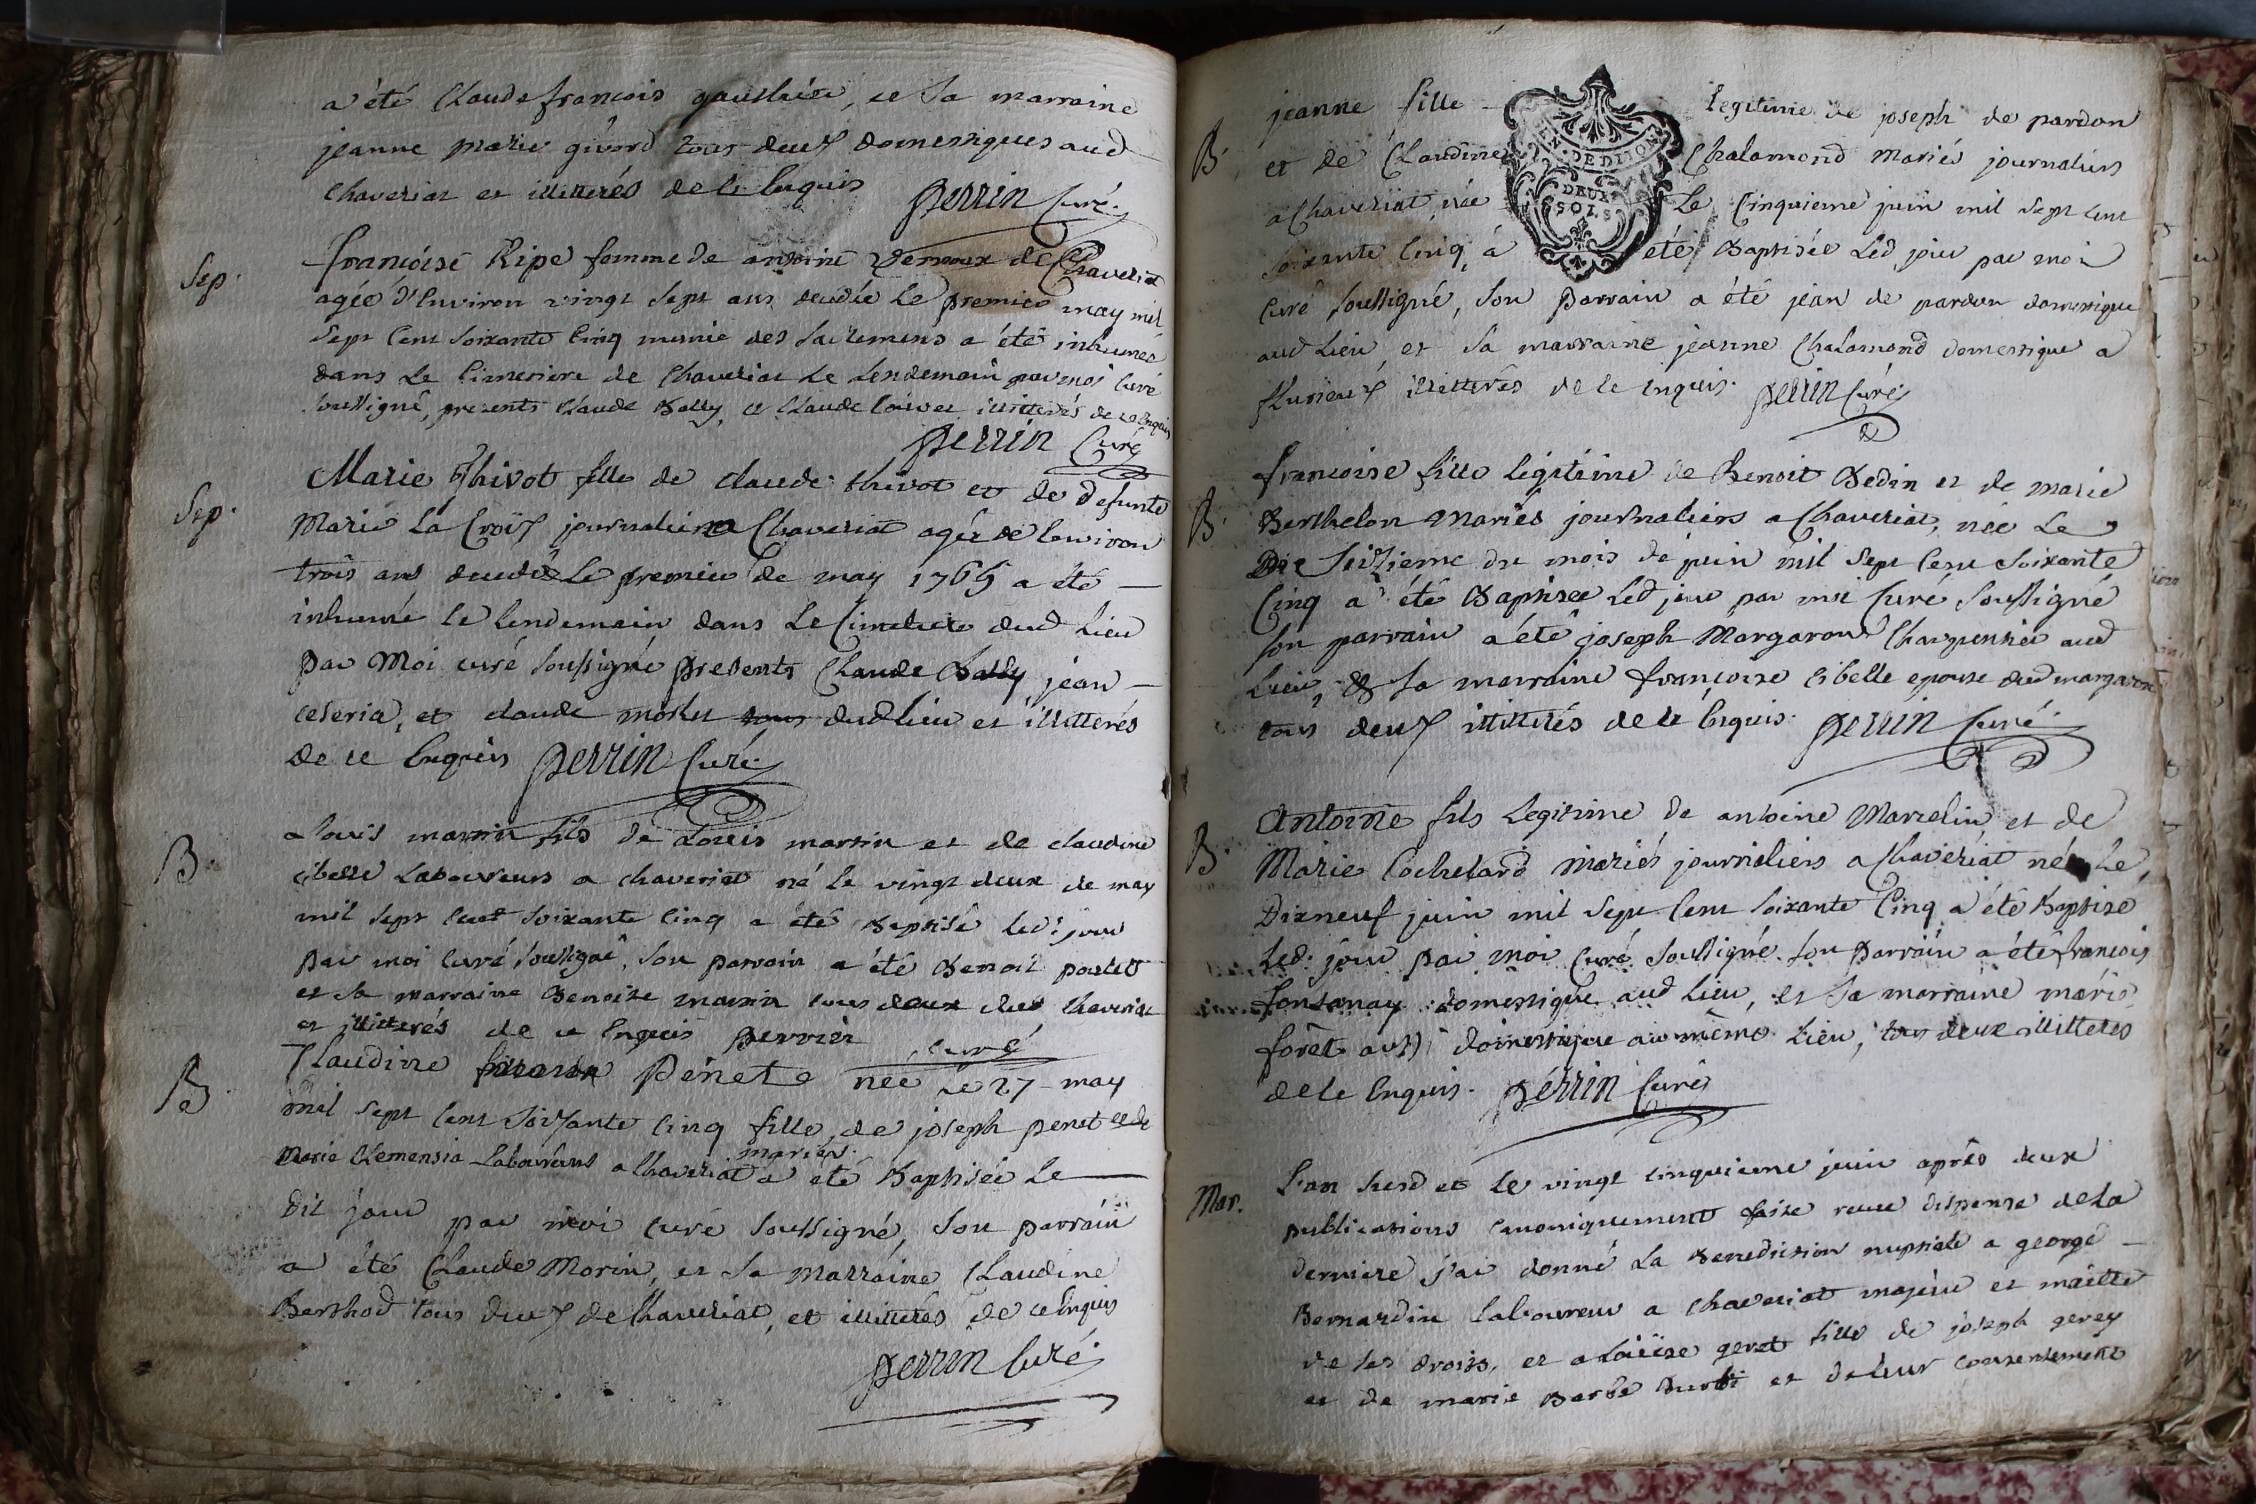 a été Claude françois gaultier, et sa marraine
jeanne marie givord tous deux domestiques aud
Chaveriat et illitterés de ce Enquis
perrin Curé
Sep. françoise Ripe femme de antoine de Chaveriat
agée d'Environ vingt sept ans decedée Le premier may mil
sept Cent soixante Cinq munie des sacremens a été inhumée
dans Le Cimetiere de Chaveriat Le Lendemain par moi Curé
soussigné, presents Claude Bally, et Claude illitterés de ce Enquis
perrin Curé
Sep. Marie Thivot fille de claude thivot et de defunte
Marie La Croix journalier a Chaveriat agée de Environ
trois ans decedée Le premier de may 1765 a été
inhumée le lendemain dans Le Cimetiere dud Lieu
par Moi curé soussigné presents Claude Bally jean
ceseria, et claude dudlieu et illitterés
de ce Enquis perrin Curé
B. Louis martin fils de Louis martin et de claudine
cibelle Laboureurs a chaveriat né le vingt deux de may
mil sept cent soixante Cinq a été Baptisé led. jour
par moi curé soussigné, son parrain a été Benoit
et sa marraine Benoite martin tous deux dud Chaveriat
et illitterés de ce Enquis perrin
curé
B. Claudine Penet née Le 27 may
mil sept Cent soixante Cinq fille de joseph penet et de
mariés
Marie Clemensia Laboureurs a Chaveriat a été Baptisée Le
dit jour par moi curé soussigné, son parrain
a été Claude Morin, et sa marraine Claudine
Berthod tous deux de Chaveriat, et illitterés de ce Enquis
perrin Curé
jeanne fille legitime de joseph de pardon
B. et de Claudine Chalamond Mariés journaliers
a Chaveriat, née Le Cinquieme juin mil sept cent
soixante Cinq, a été Baptisée Led jour par moi
curé soussigné, son parrain a été jean de pardon domestique
aud Lieu et sa marraine jeanne Chalamond domestique a
flurieux illitterés de ce Enquis. perrin Curé
GEN. DE DIJON
DEUX
SOLS
françoise fille légitime de Benoit Bedin et de marie
B. Berthelon Mariés journaliers a Chaveriat, née Le
seizieme du mois de juin mil sept Cent soixante
Cinq a été Baptisée Led jour par moi Curé soussigné
son parrain a été joseph Margaron Charpentier aud
Lieu, & sa marraine françoise cibelle epouse dud margaron
tous deux illitterés de ce Enquis. perrin Curé
Antoine fils Legitime de antoine Marcelin et de
B. Marie Cochetard Mariés journaliers a Chaveriat né Le
Dixneuf juin mil sept Cent soixante Cinq a été Baptisé
Led. jour par moi Curé soussigné. son Parrain a été françois
fontanay domestique aud Lieu, et sa marraine marie
forêt aussi domestique au même Lieu, tous deux illitterés
de ce Enquis. perrin Curé
Mar. L'an susd et Le vingt cinquieme juin après deux
publications canoniquement faite reçue dispense de la
derniere j'ai donné La Benediction nuptiale a george
Bernardin Laboureur a Chaveriat majeur et maître
de ses droits, et a Loüise geret fille de joseph gerey
et de marie Barbe et de leur consentement